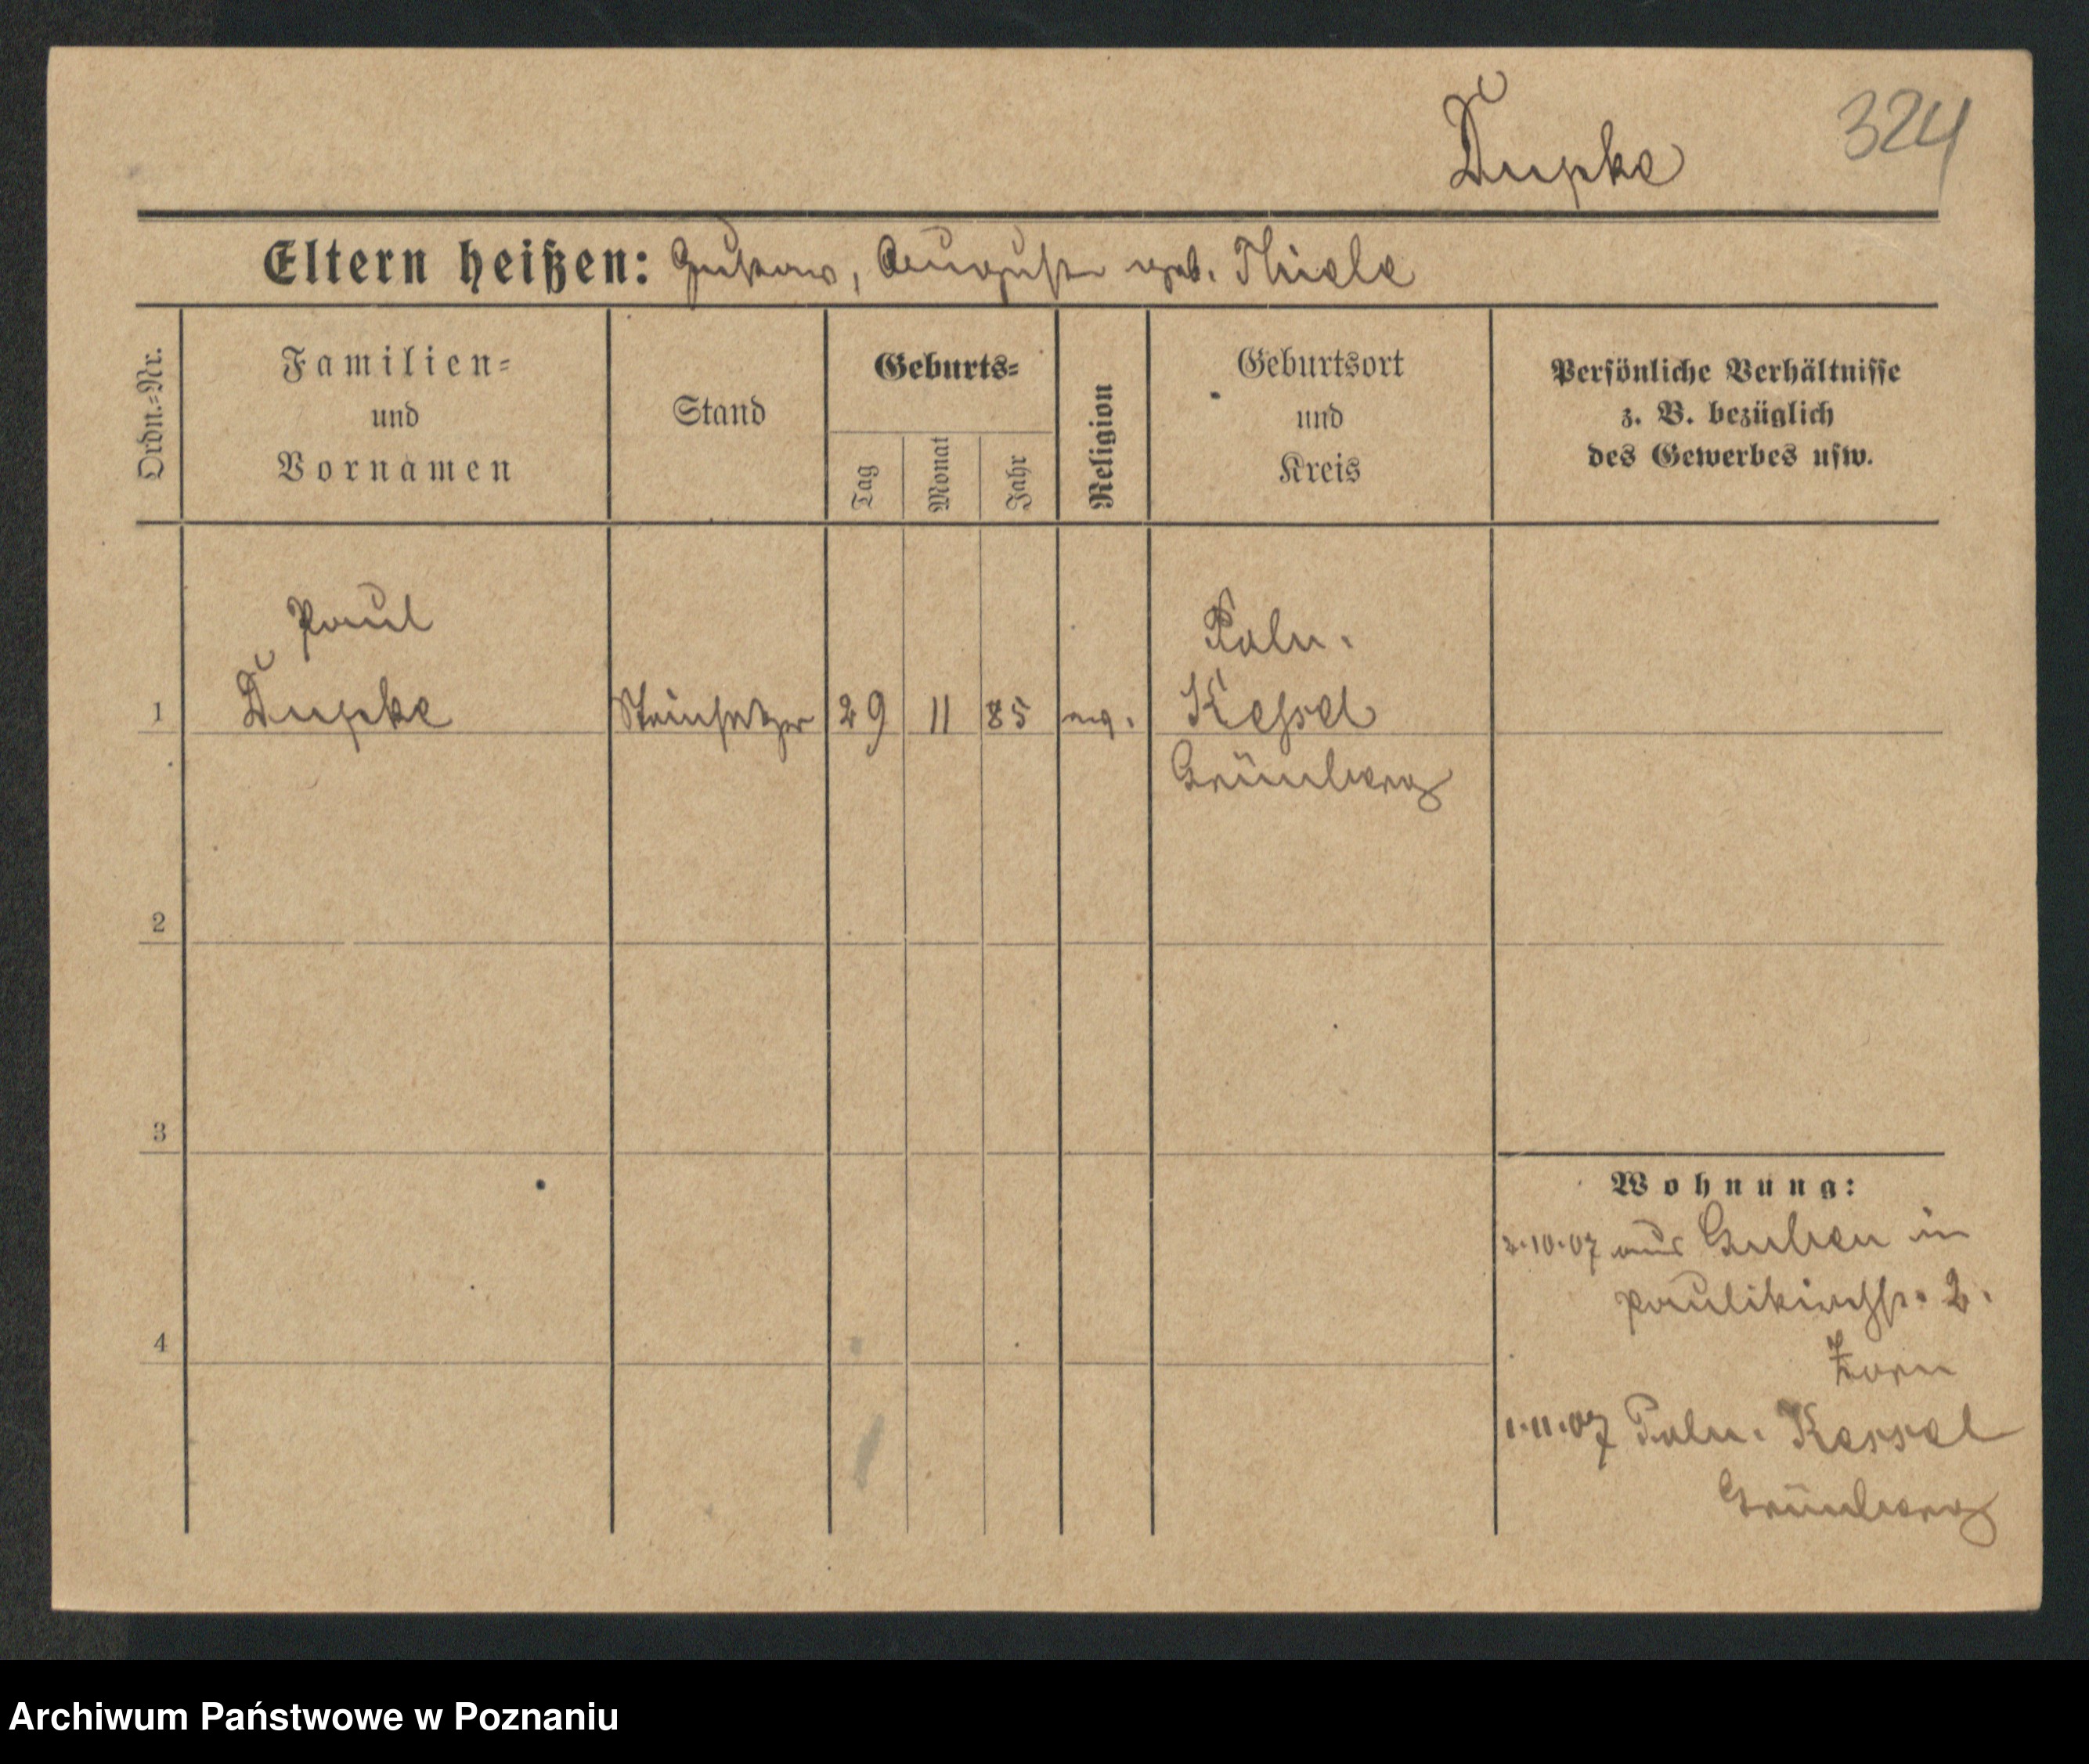 Dupke
324
Eltern heißen: Gustav, Auguste geb. Thiele
Ordn.-Nr.
Familien-
und
Vornamen
Stand
Geburts-
Tag
Monat
Jahr
Religion
Geburtsort
und
Kreis
Persönliche Verhältnisse
z. B. bezüglich
des Gewerbes usw.
Paul
Poln.
1 Dupke Steinsetzer 29 11 85 ev. Kessel
Grünberg
2
3
Wohnung:
2.10.07 aus Guben in
Paulikirchstr. 2.
4
Zorn
1.11.07 Poln. Kessel
Grünberg
Archiwum Państwowe w Poznaniu